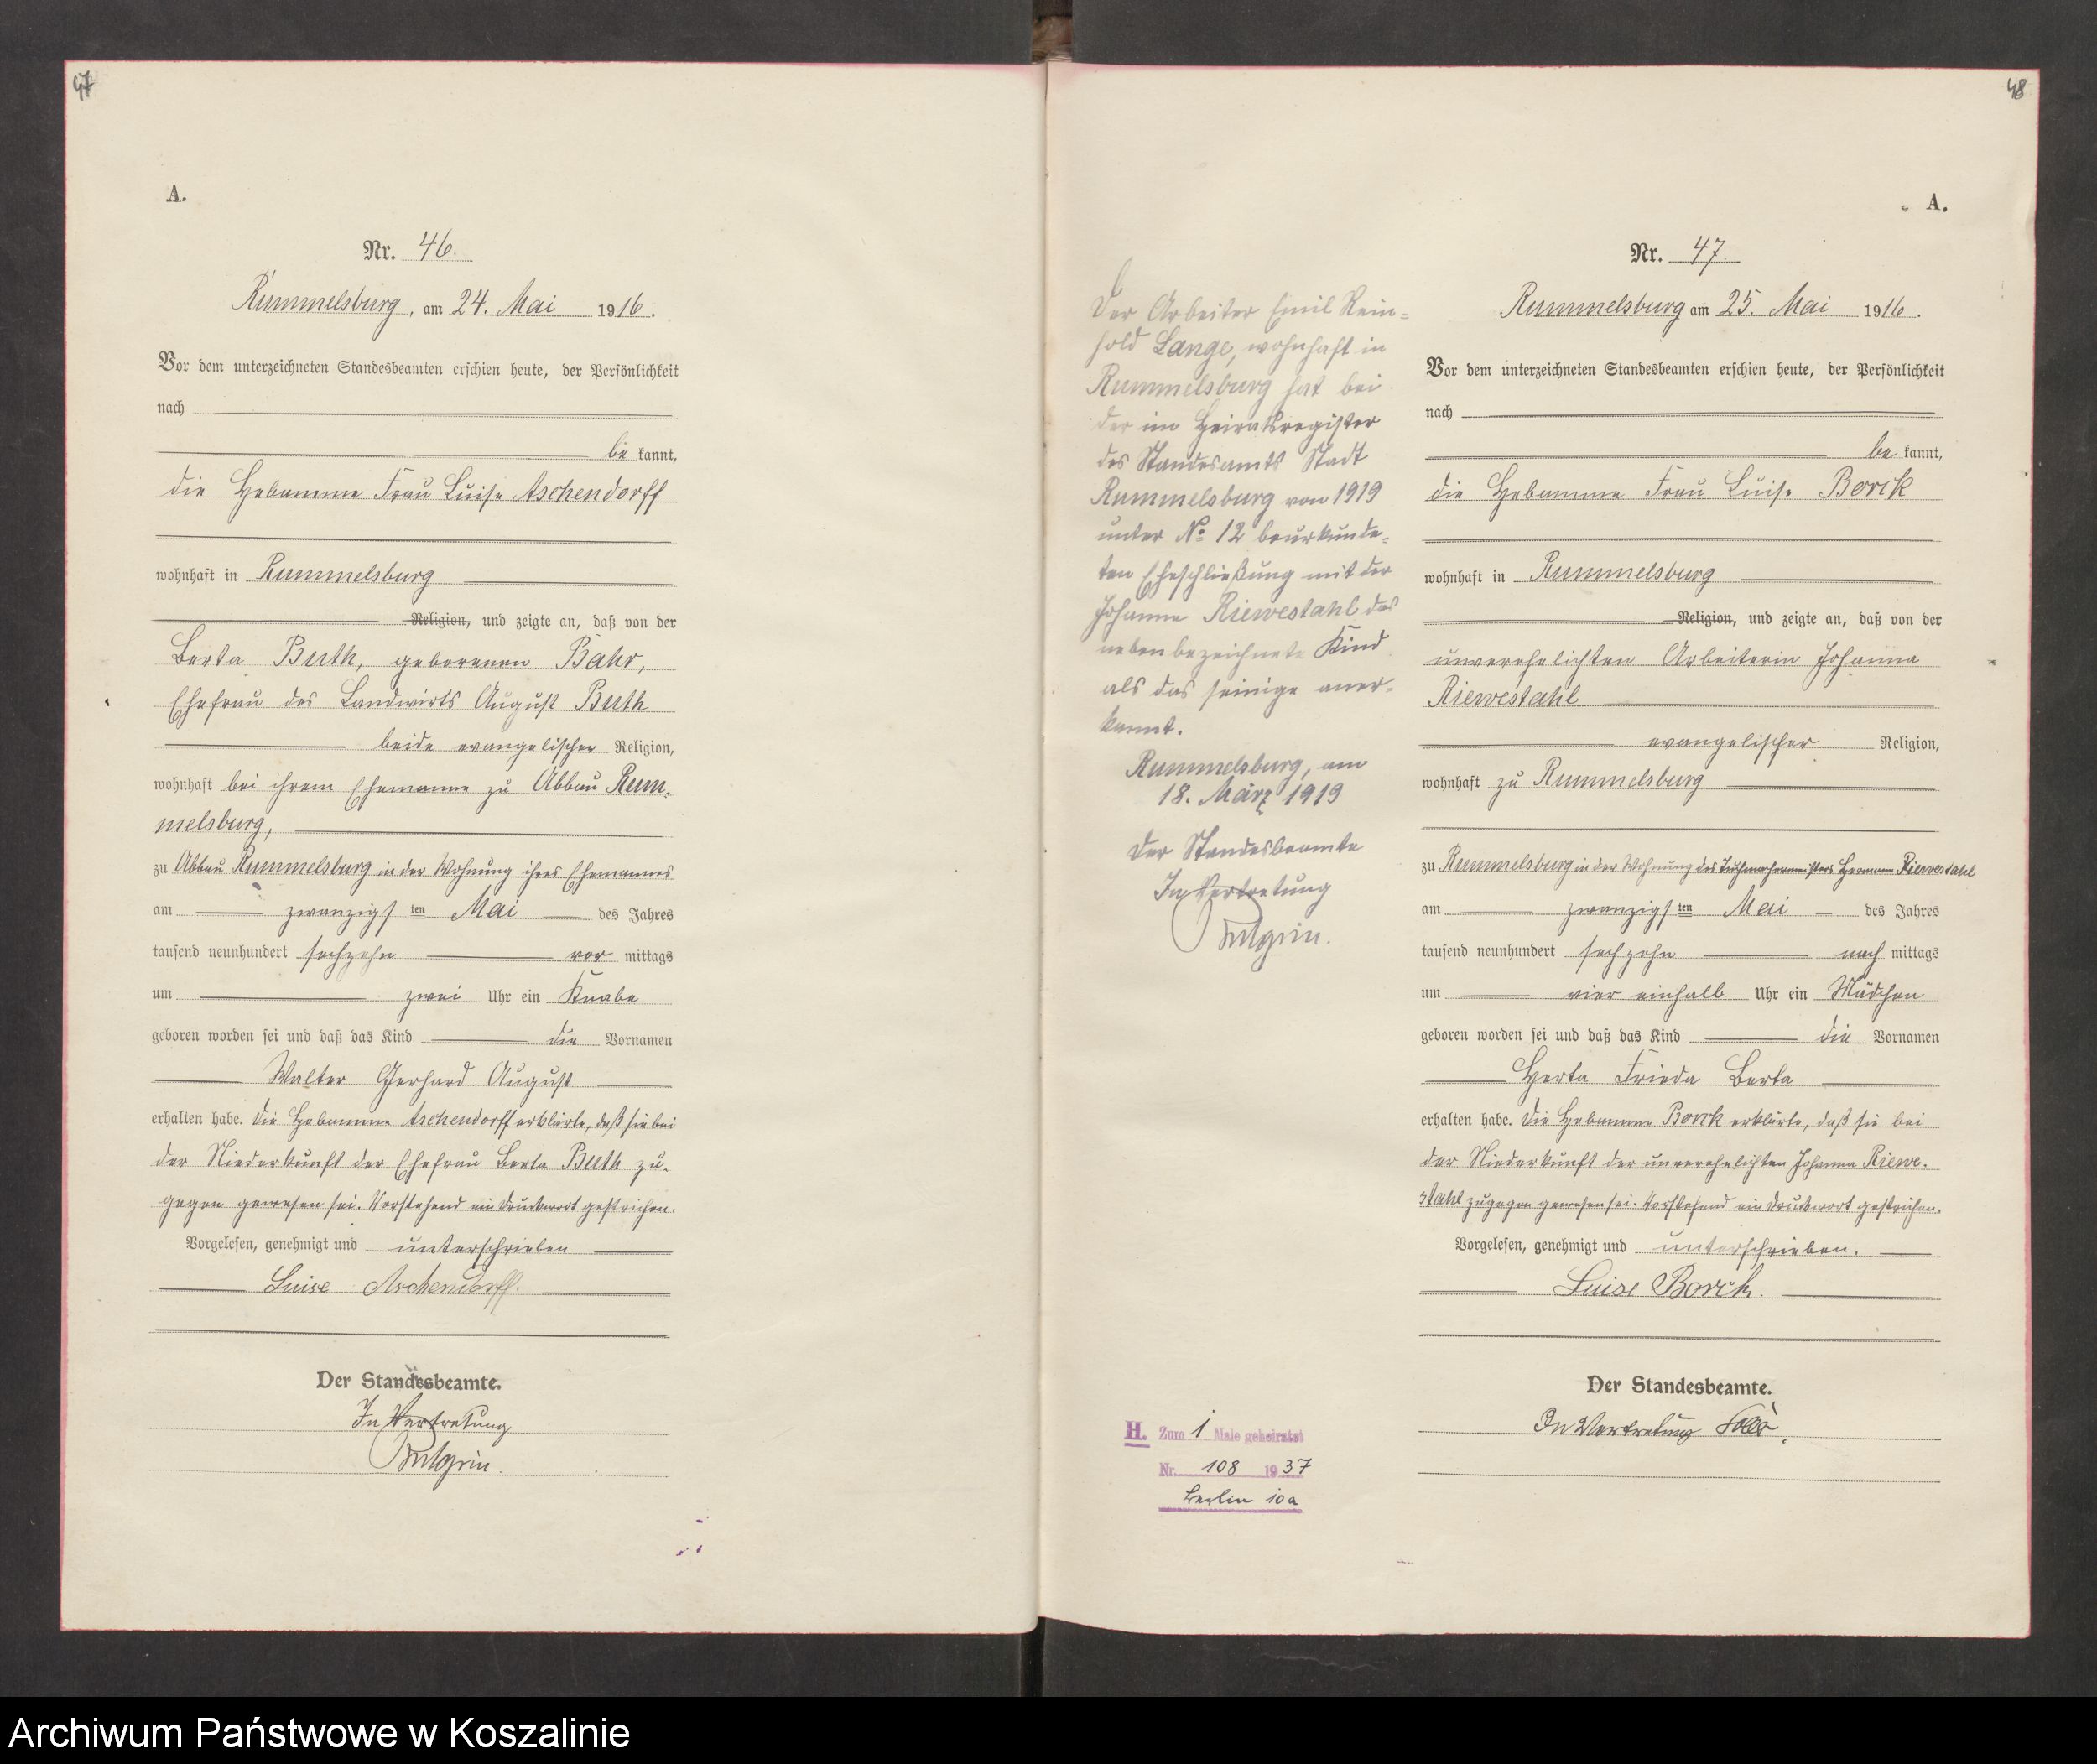 47
A.
Nr. 46.
Rummelsburg, am 24. Mai 1916.
Vor dem unterzeichneten Standesbeamten erschien heute, der Persönlichkeit
nach
be kannt,
die Hebamme Frau Luise Aschendorff
wohnhaft in Rummelsburg
Religion, und zeigte an, daß von der
Berta Buth, geborenen Bahr,
Ehefrau des Landwirts August Buth
beide evangelischer Religion,
wohnhaft bei ihrem Ehemanne zu Abbau Rum-
melsburg,
zu Abbau Rummelsburg in der Wohnung ihres Ehemannes
am zwanzigsten Mai des Jahres
tausend neunhundert sechzehn vor mittags
um zwei Uhr ein Knabe
geboren worden sei und daß das Kind die Vornamen
Walter Gerhard August
erhalten habe. Die Hebamme Aschendorff erklärte, daß sie bei
der Niederkunft der Ehefrau Berta Buth zu-
gegen gewesen sei. Vorstehend ein Druckwort gestrichen.
Vorgelesen, genehmigt und unterschrieben
Luise Aschendorff.
Der Standesbeamte.
In Vertretung
48
A.
Der Arbeiter Emil Rein-
hold Lange, wohnhaft in
Rummelsburg hat bei
der im Heiratsregister
des Standesamts Stadt
Rummelsburg von 1919
unter No 12 beurkunde-
ten Eheschließung mit der
Johanna Riewestahl das
nebenbezeichnete Kind
als das seinige aner-
kannt.
Rummelsburg, am
18. März 1919
Der Standesbeamte
In Vertretung
H. Zum 1 Male geheiratet
Nr. 108 1937
Berlin 10a
Nr. 47.
Rummelsburg am 25. Mai 1916.
Vor dem unterzeichneten Standesbeamten erschien heute, der Persönlichkeit
nach
be kannt,
die Hebamme Frau Luise Borck
wohnhaft in Rummelsburg
Religion, und zeigte an, daß von der
unverehelichten Arbeiterin Johanna
Riewestahl
evangelischer Religion,
wohnhaft zu Rummelsburg
zu Rummelsburg in der Wohnung des Tuchmachermeisters Hermann Riewestahl
am zwanzigsten Mai des Jahres
tausend neunhundert sechzehn nach mittags
um vier einhalb Uhr ein Mädchen
geboren worden sei und daß das Kind die Vornamen
Herta Frieda Berta
erhalten habe. Die Hebamme Borck erklärte, daß sie bei
der Niederkunft der unverehelichten Johanna Riewe-
stahl zugegen gewesen sei. Vorstehend ein Druckwort gestrichen.
Vorgelesen, genehmigt und unterschrieben.
Luise Borck.
Der Standesbeamte.
In Vertretung
Archiwum Państwowe w Koszalinie